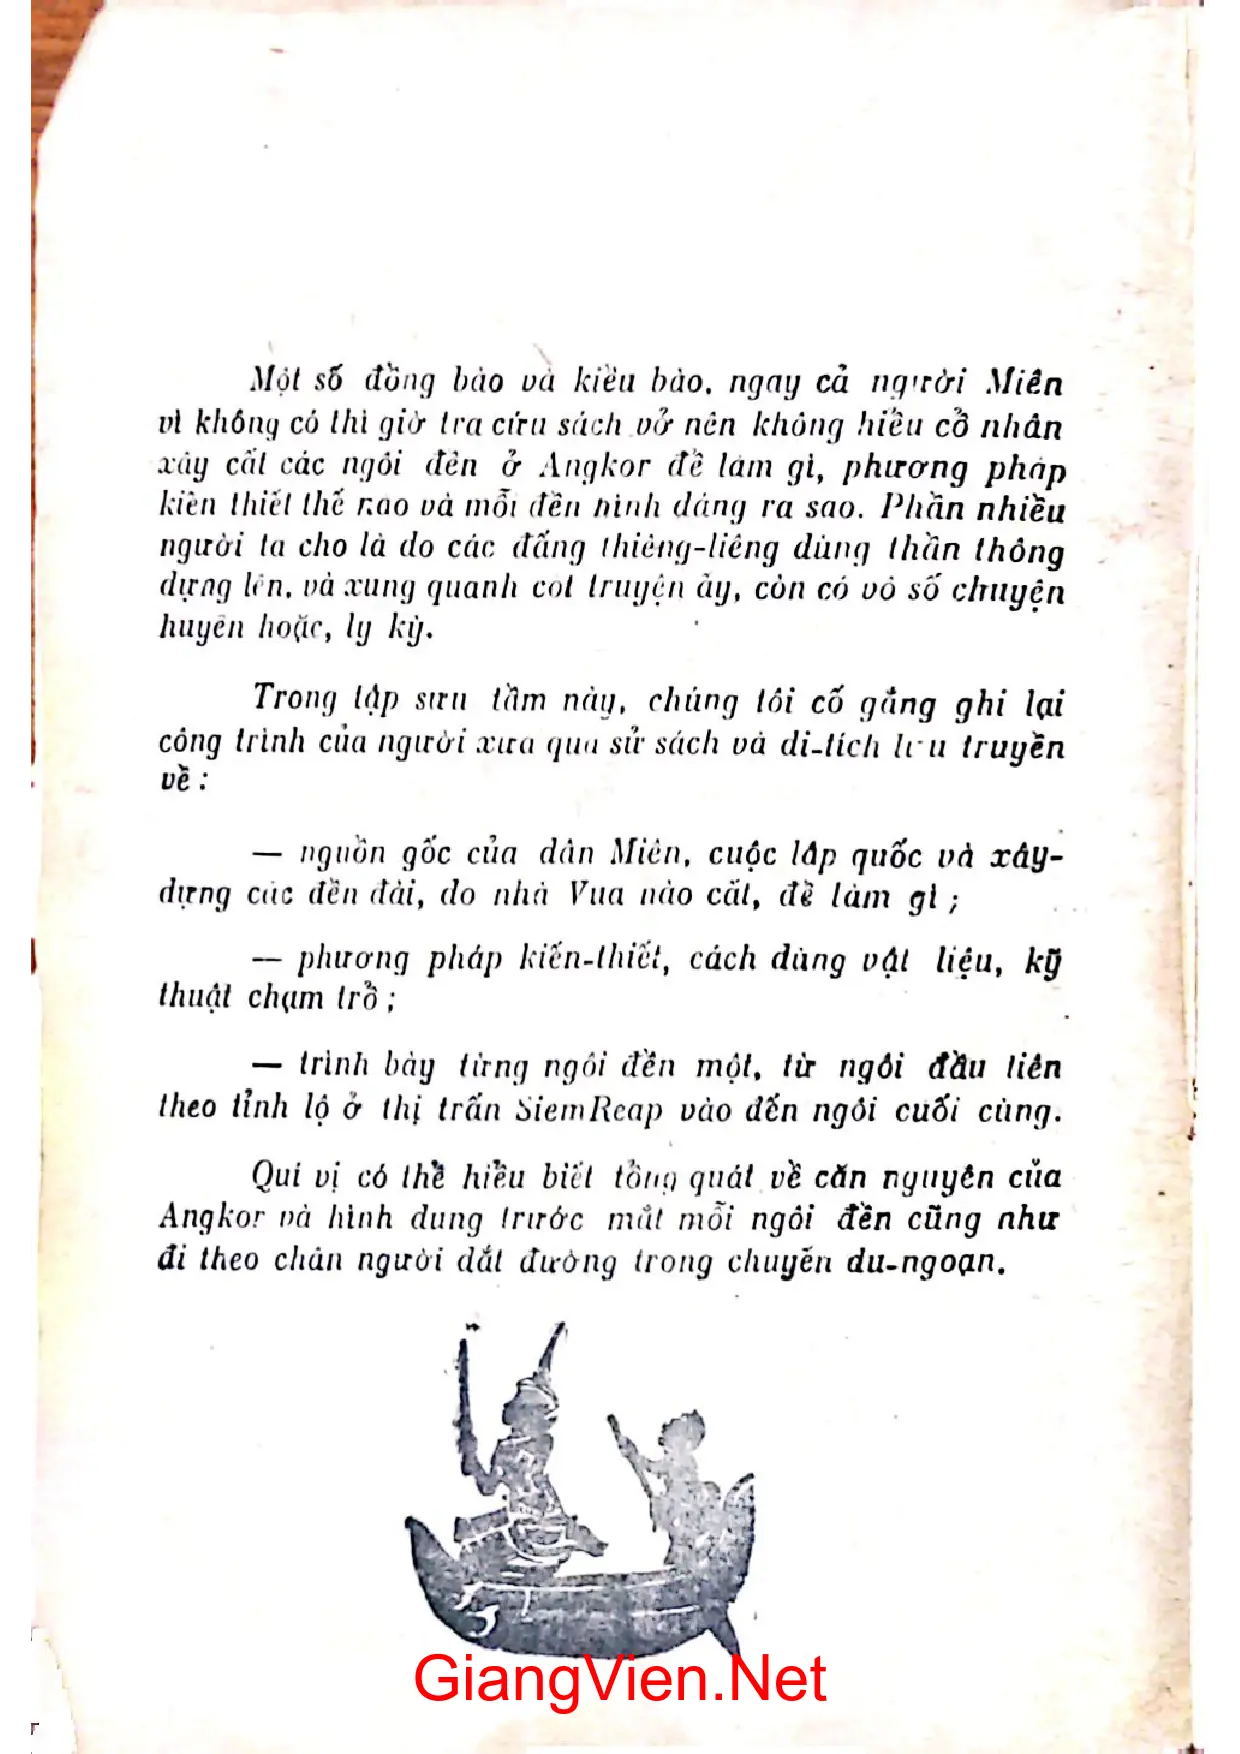 Một số đồng bào và kiều bào, ngay cả người Miên
vì không có thì giờ tra cứu sách vở nên không hiểu cổ nhân
xây cất các ngôi đền ở Angkor để làm gì, phương pháp
kiến thiết thế nào và mỗi đền hình dáng ra sao. Phần nhiều
người ta cho là do các đấng thiêng-liêng dùng thần thông
dựng lên, và xung quanh cốt truyện ấy, còn có vô số chuyện
huyền hoặc, ly kỳ.
Trong tập sưu tầm này, chúng tôi cố gắng ghi lại
công trình của người xưa qua sử sách và di-tích lưu truyền
về :
— nguồn gốc của dân Miên, cuộc lập quốc và xây-
dựng các đền đài, do nhà Vua nào cất, để làm gì ;
— phương pháp kiến-thiết, cách dùng vật liệu, kỹ
thuật chạm trổ ;
— trình bày từng ngôi đền một, từ ngôi đầu tiên
theo tỉnh lộ ở thị trấn SiemReap vào đến ngôi cuối cùng.
Quí vị có thể hiểu biết tổng quát về căn nguyên của
Angkor và hình dung trước mắt mỗi ngôi đền cũng như
đi theo chân người dắt đường trong chuyến du-ngoạn.
GiangVien.Net